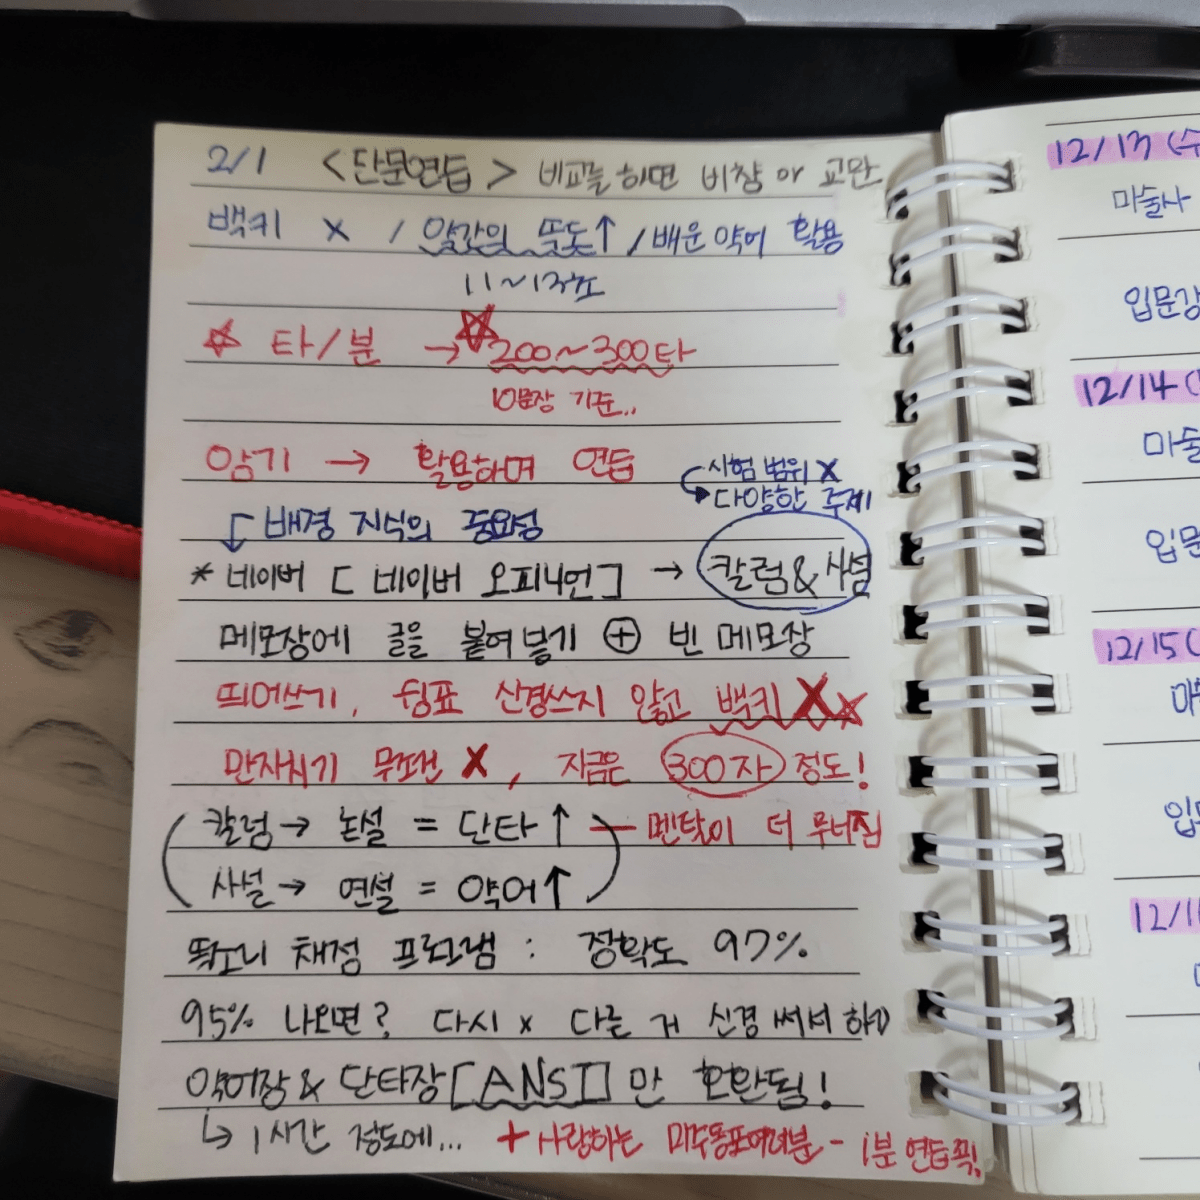 2/1 <단문연습> 비교를 하면 비참 or 교만
백키 X / 약간의 뚝뚝↑ / 배운 약어 활용
11~13초
☆ 타/분 → ☆200~300타
10문장 기준..
암기 → 활용하며 연습
시험 범위 X
다양한 주제
배경 지식의 중요성
* 네이버 [네이버 오피니언] → 칼럼&사설
메모장에 글을 붙여넣기 ⊕ 빈 메모장
띄어쓰기, 쉼표 신경쓰지 않고 백키 X☆
만자치기 무조건 X, 지금은 300자 정도!
(칼럼→ 논설 = 단타↑) — 멘탈이 더 무너짐
(사설→ 연설 = 약어↑)
똑소니 채점 프로그램 : 정확도 97%
95% 나오면? 다시 x 다른 거 신경 써서 하기
약어장 & 단타장 [ANSI]만 호환됨!
↳ 1시간 정도에... + 사랑하는 미주동포여러분 - 1분 연습 꼭!
12/13 (수
마술사
입문강
12/14 (
마술
입문
12/15 (
마
입
12/1